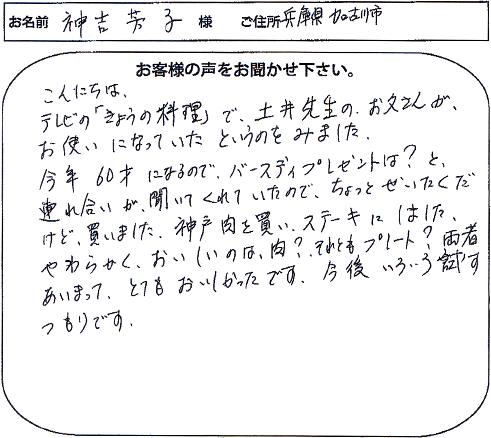 お名前 神吉芳子 様 ご住所 兵庫県加古川市
お客様の声をお聞かせ下さい。
こんにちは、
テレビの「きょうの料理」で、土井先生の、お父さんが、
お使いになっていたというのをみました。
今年60才になるので、バースディプレゼントは？と、
連れ合いが、聞いてくれていたので、ちょっとぜいたくだ
けど、買いました。神戸肉を買い、ステーキにしました。
やわらかく、おいしいのは、肉？、それともプレート？両者
あいまって、とてもおいしかったです。今後いろいろ試す
つもりです。